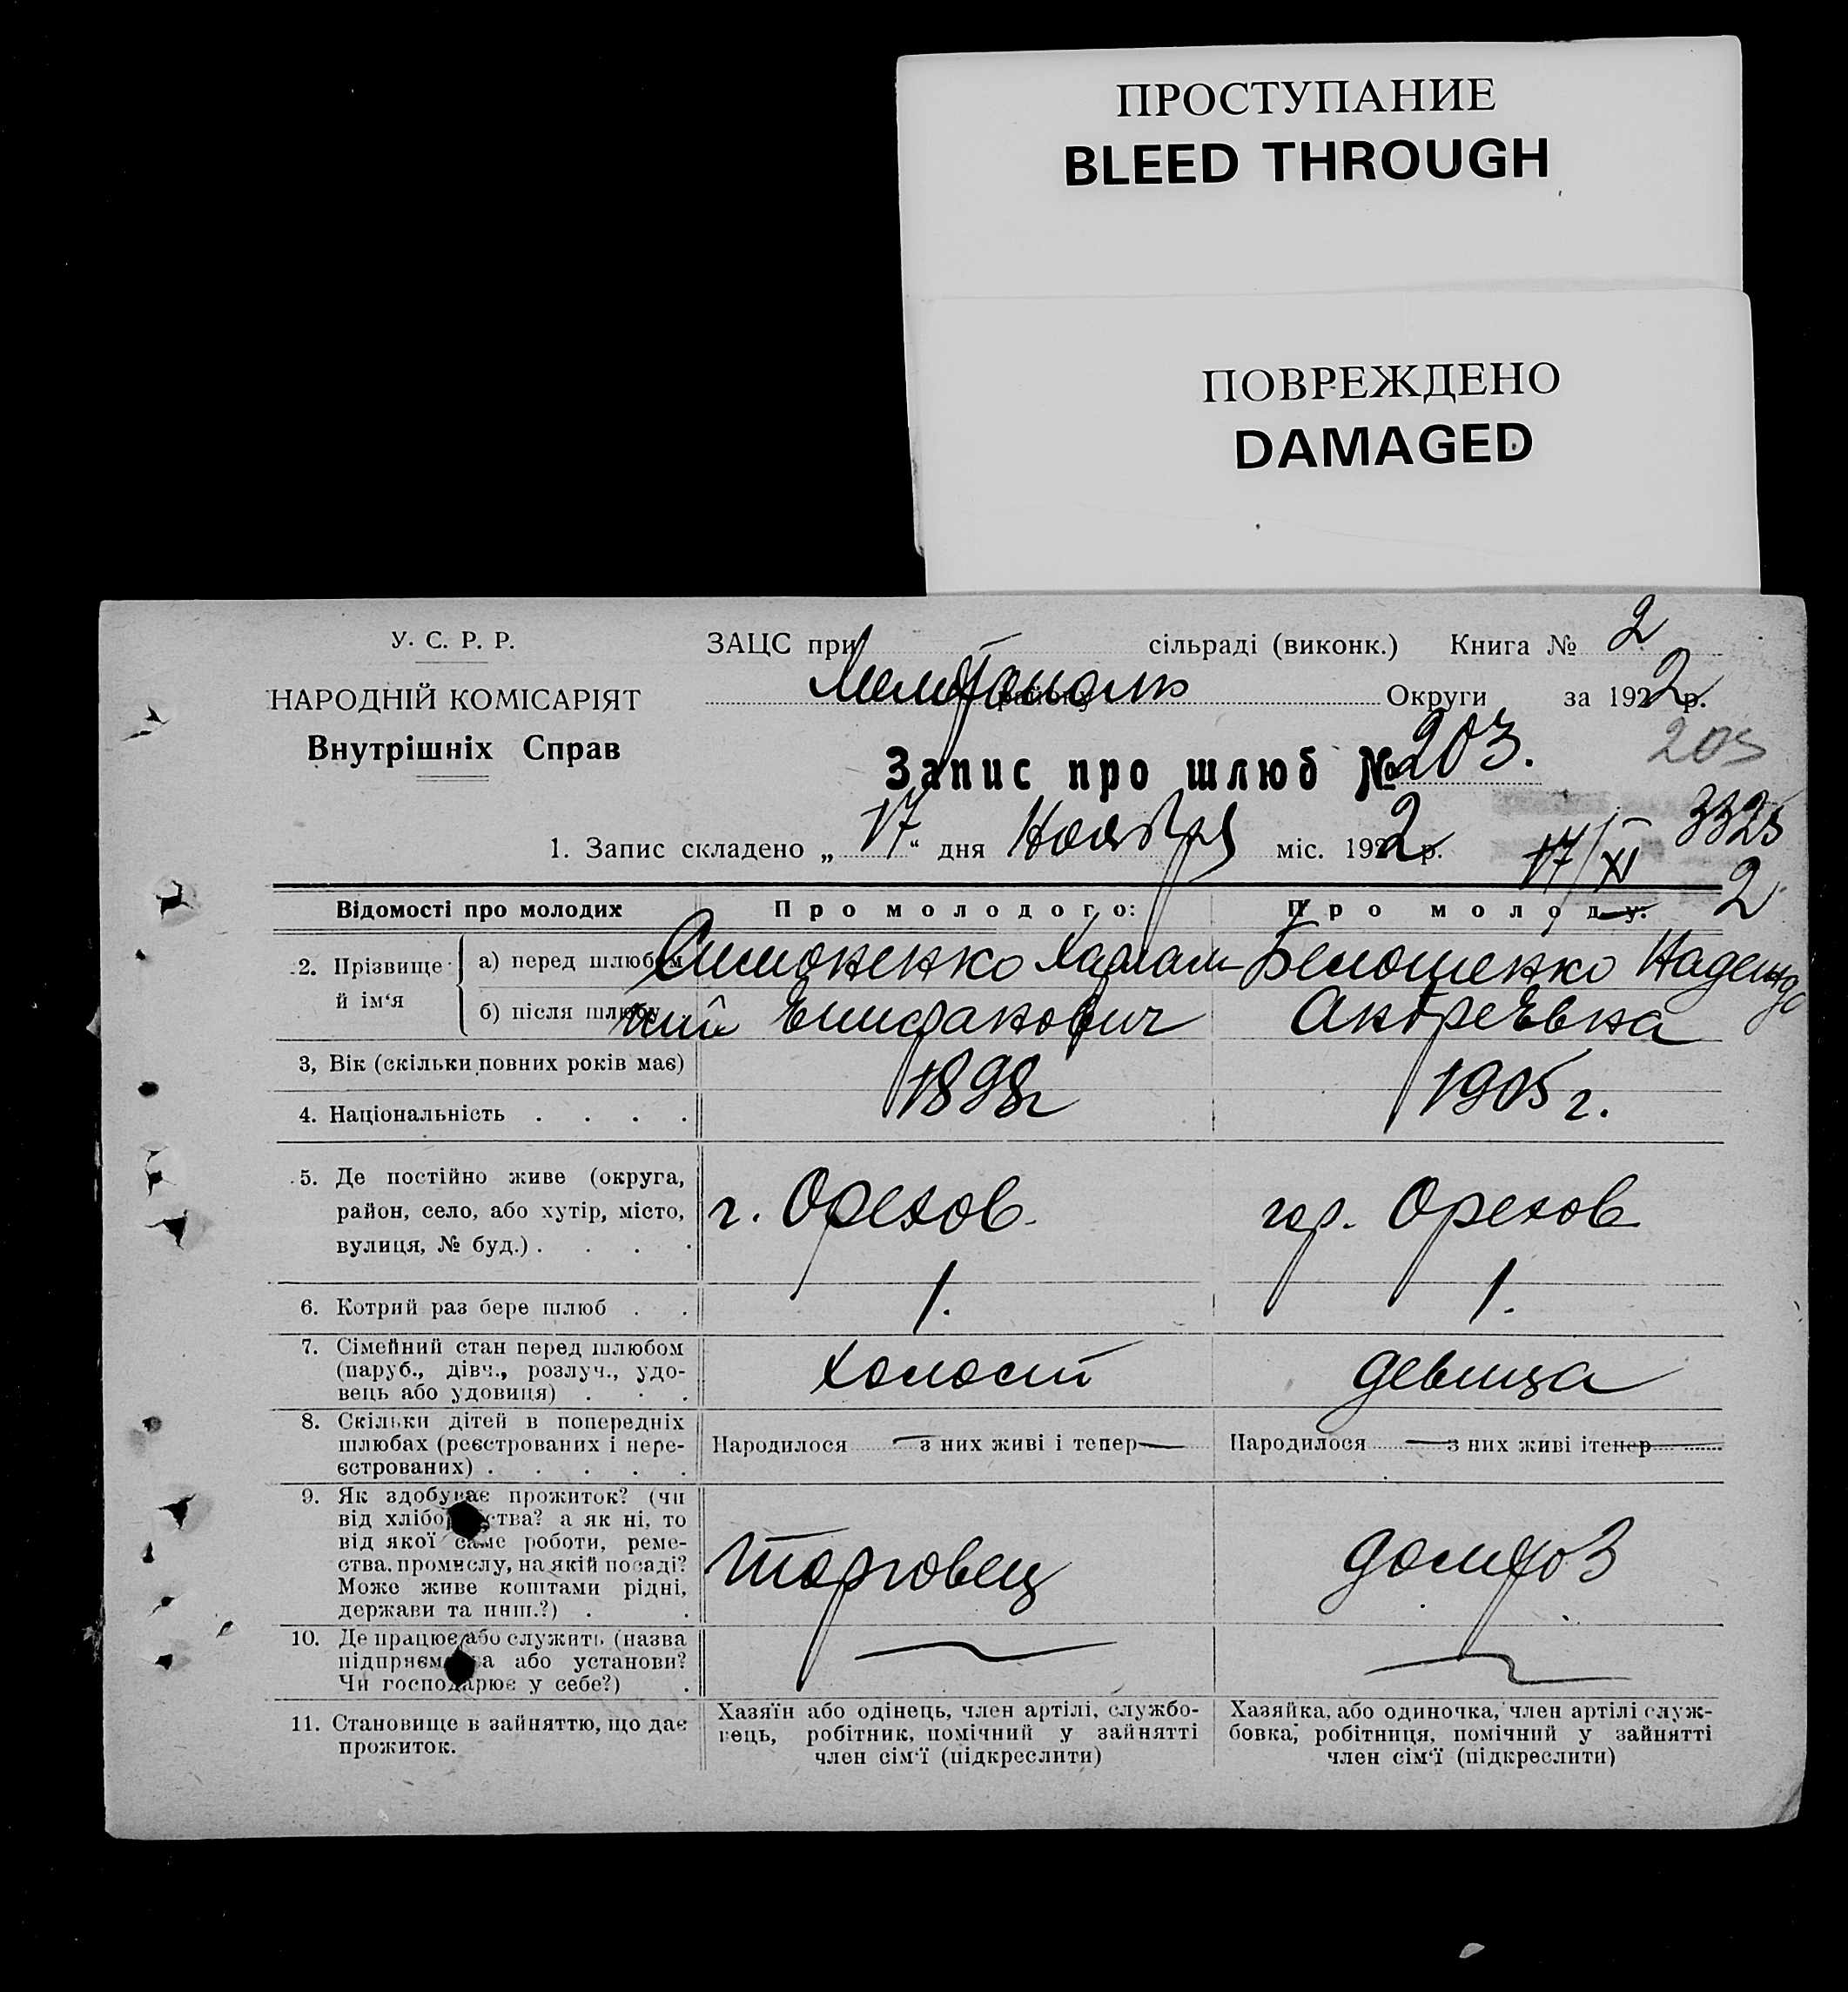 ПРОСТУПАНИЕ
BLEED THROUGH
ПОВРЕЖДЕНО
DAMAGED
У. С. Р. Р.
НАРОДНІЙ КОМІСАРІЯТ
Внутрішніх Справ
ЗАЦС при сільраді (виконк.) Книга № 2
району Округи за 1922 р.
Запис про шлюб № 203.
203
3325
1. Запис складено „17“ дня Ноября міс. 1922 р.
17/XI 2
Відомості про молодих
Про молодого:
Про молоду:
2. Прізвище й ім‘я
а) перед шлюбом
б) після шлюбу
Симоненко
Епифанович
Белошенко Надежда
Андреевна
3, Вік (скільки повних років має)
1898г
1905 г.
4. Національність . . . .
5. Де постійно живе (округа,
район, село, або хутір, місто,
вулиця, № буд.) . . . .
г. Орехов.
гор. Орехов
6. Котрий раз бере шлюб . .
1.
1.
7. Сімейний стан перед шлюбом
(паруб., дівч., розлуч., удо-
вець або удовиця) . . .
холост
девица
8. Скільки дітей в попередніх
шлюбах (реєстрованих і нере-
єстрованих) . . . . .
Народилося — з них живі і тепер —
Народилося — з них живі і тепер —
9. Як здобуває прожиток? (чи
від хліборобства? а як ні, то
від якої саме роботи, реме-
ства, промислу, на якій посаді?
Може живе коштами рідні,
держави та инш.?) . .
торговец
домхоз
10. Де працює або служить (назва
підприємства або установи?
Чи господарює у себе?) .
11. Становище в зайняттю, що дає
прожиток.
Хазяїн або одінець, член артілі, службо-
вець, робітник, помічний у зайнятті
член сім‘ї (підкреслити)
Хазяйка, або одиночка, член артілі служ-
бовка, робітниця, помічний у зайнятті
член сім‘ї (підкреслити)